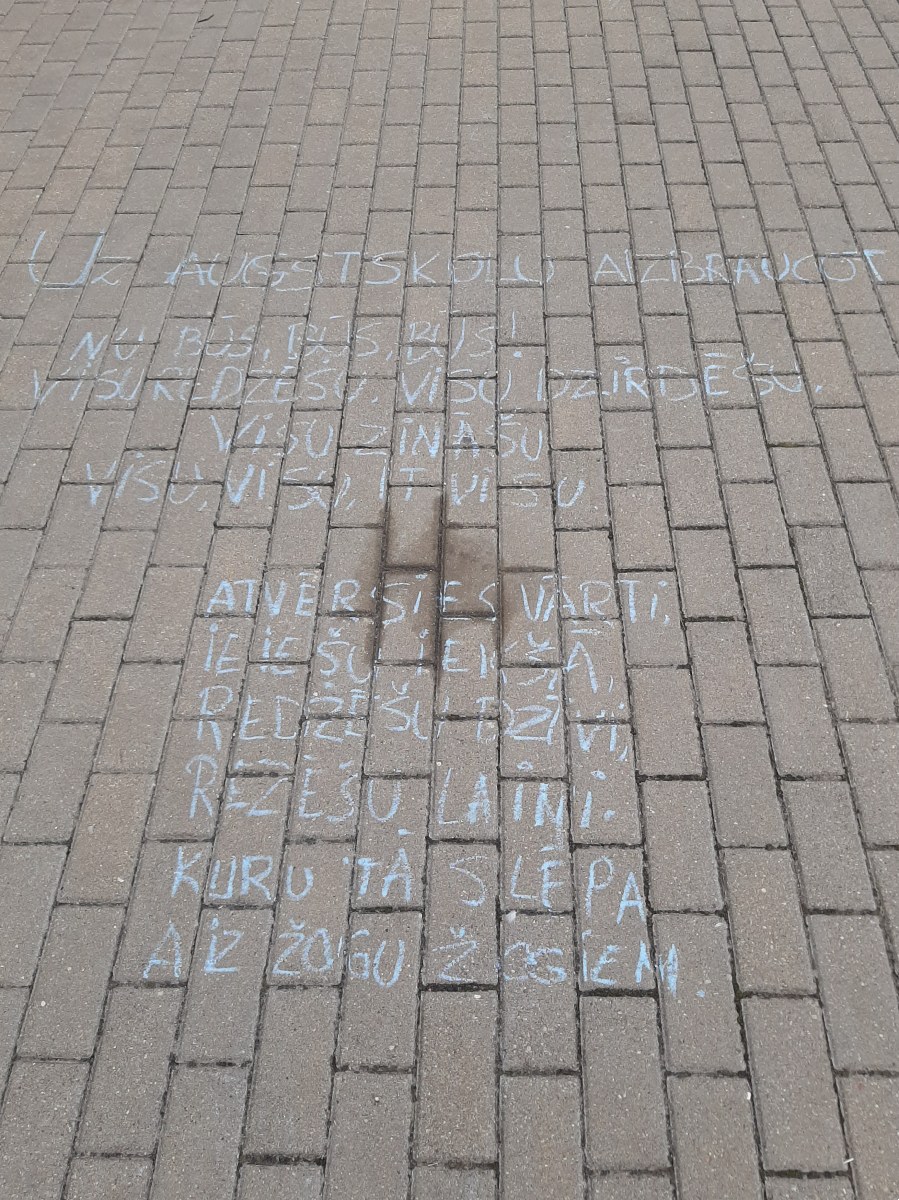 UZ AUGSTSKOLU AIZBRAUCOT
NU BŪS, BŪS, BŪS!
VISU REDZĒŠU, VISU DZIRDĒŠU,
VISU ZINĀŠU
VISU, VISU, IT VISU.
ATVĒRSIES VĀRTI,
IEIEŠU IEKŠĀ,
REDZĒŠU DZĪVI,
REZĒŠU LAIŅI.
KURU TĀ SLĒPA
AIZ ŽOGU ŽOGIEM.